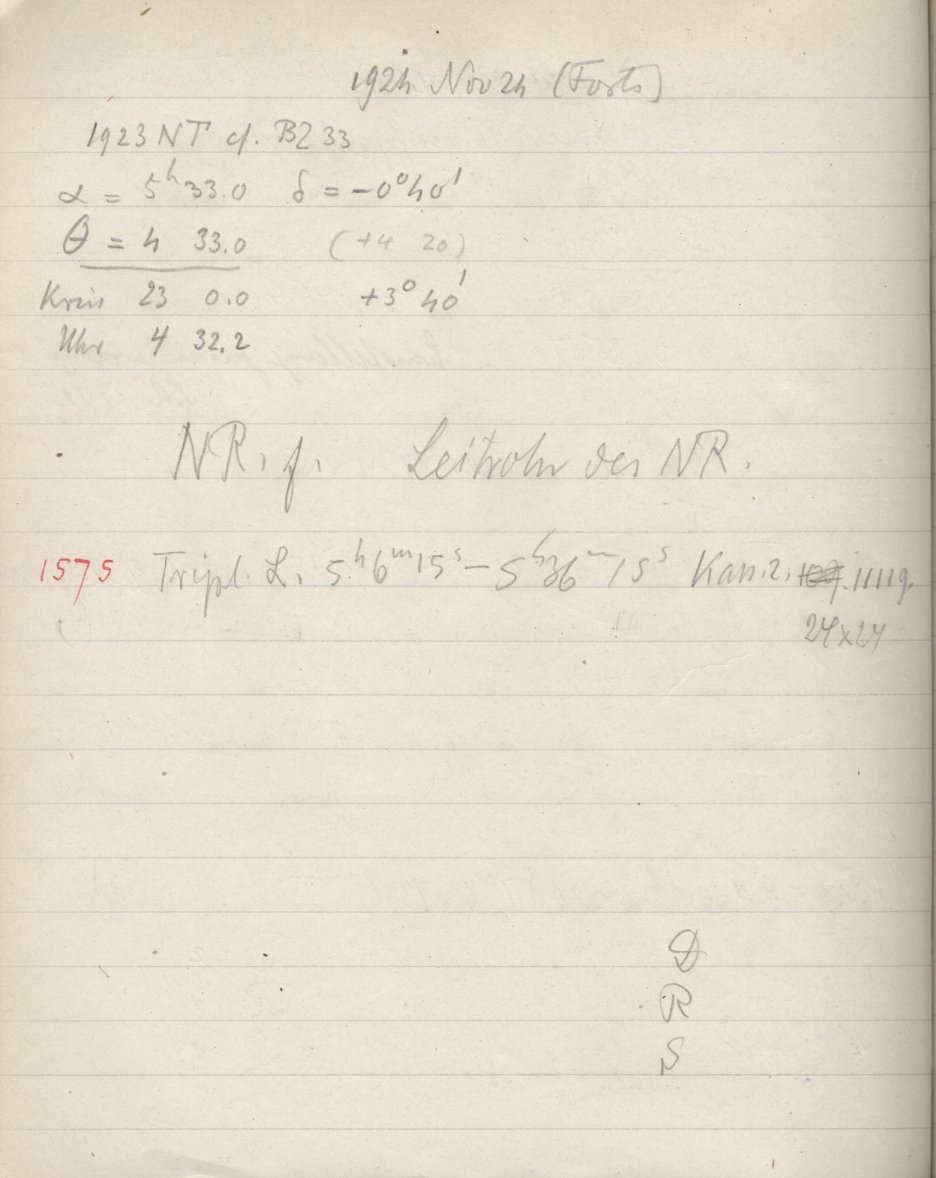 1924 Nov 24 (Forts)
1923 NT cf. BZ 33
α = 5ʰ 33.0 δ = −0° 40'
θ = 4 33.0 (+4 20)
Kreis 23 0.0 +3° 40'
Uhr 4 32.2
NR. f. Leitrohr des NR.
1575 Tripl. L. 5ʰ 6ᵐ 15ˢ − 5ʰ 36ᵐ 15ˢ Kass. 2.
24×24
D
R
S